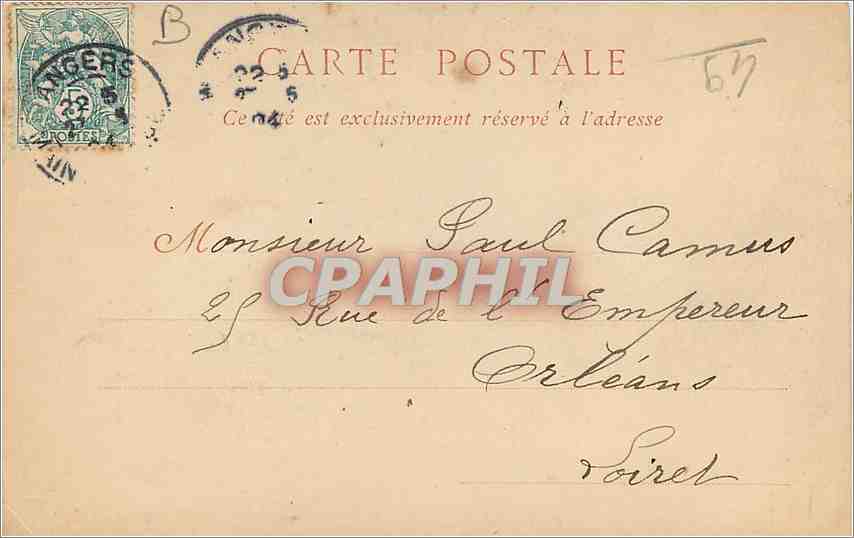 B
CARTE POSTALE
ANGERS
22
5
POSTES
22
04
Ce côté est exclusivement réservé à l'adresse
Monsieur Paul Camus
CPAPHIL
25 Rue de l'Empereur
Orléans
Loiret